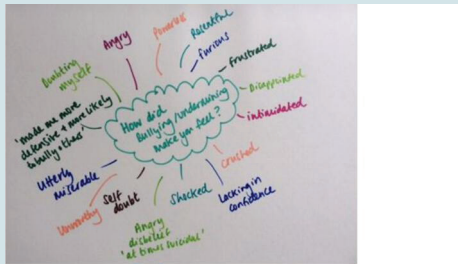 How did
Bullying/undermining
make you feel?
Angry
Powerless
Resentful
furious
frustrated
Disappointed
intimidated
crushed
Lacking in
confidence
Shocked
Angry
disbelief
'at times suicidal'
Self
doubt
Unworthy
Utterly
miserable
'made me more
defensive + more likely
to bully others'
Doubting
myself